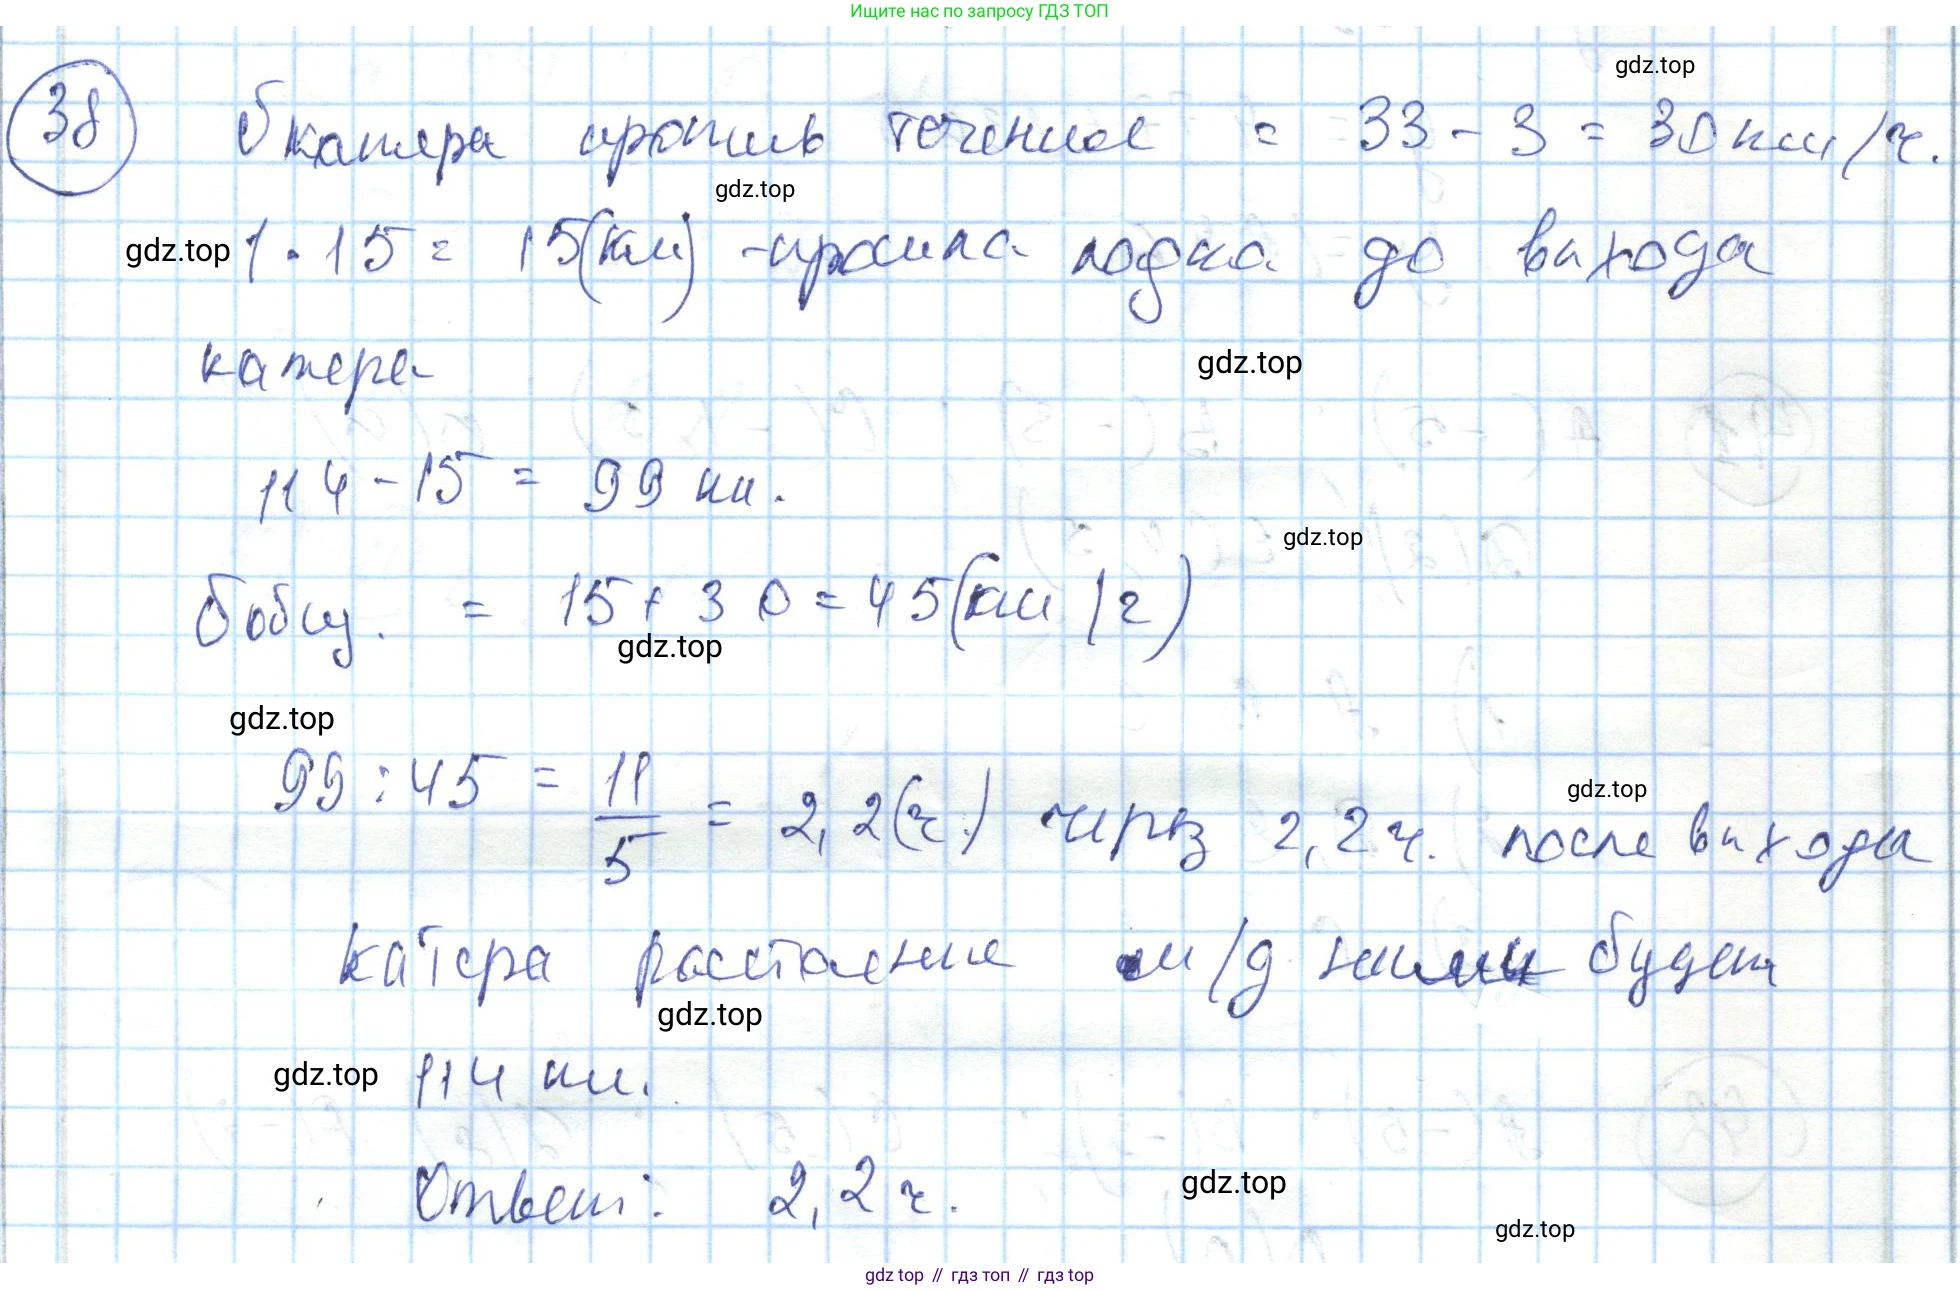 Ищите нас по запросу ГДЗ ТОП
gdz.top
38 υ катера против течения = 33 - 3 = 30 км/ч.
gdz.top
gdz.top 1 · 15 = 15(км) - прошла лодка до выхода
катера
gdz.top
114 - 15 = 99 км.
gdz.top
υ общ. = 15 + 30 = 45(км/ч)
gdz.top
gdz.top
99 : 45 = 11/5 = 2,2(ч.) через 2,2 ч. после выхода
gdz.top
катера расстояние м/д ними будет
gdz.top
gdz.top 114 км.
Ответ: 2,2 ч.
gdz.top
gdz.top
gdz top // гдз топ // гдз top